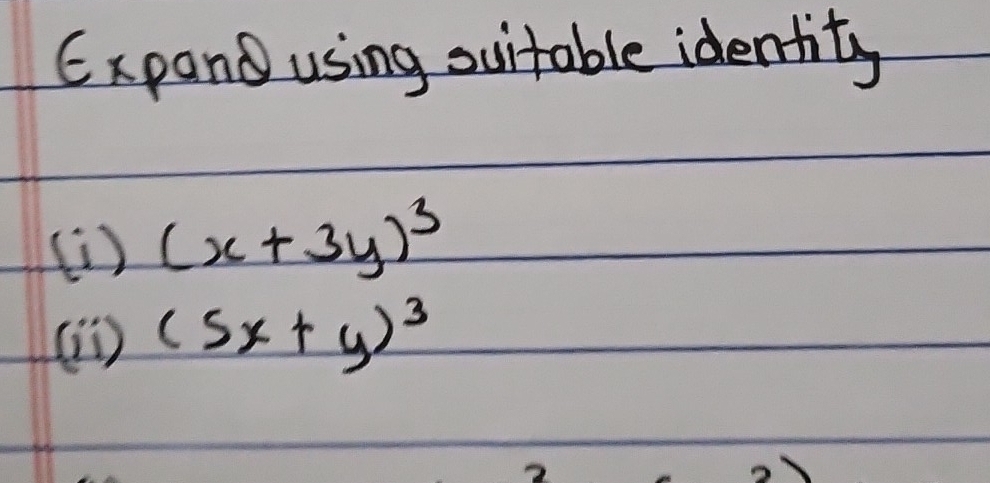 Expand using suitable identity
(i) (x + 3y)³
(ii) (5x + y)³